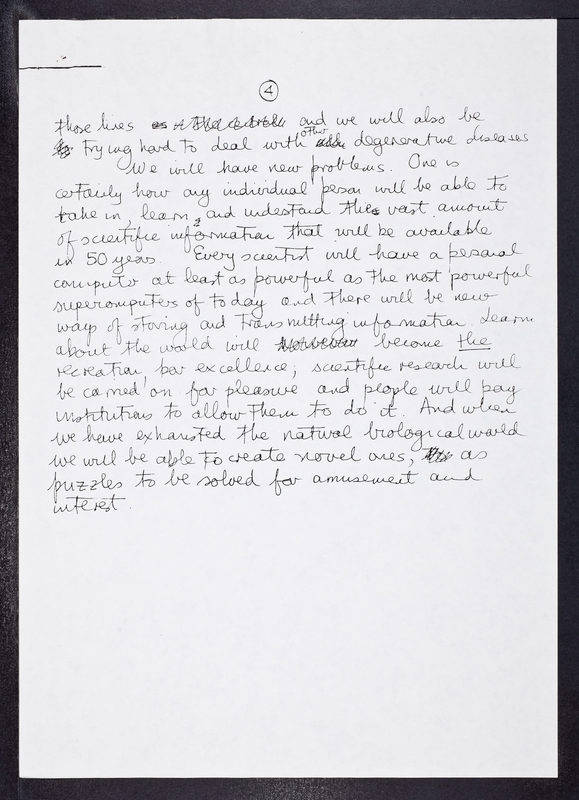 4
those lines and we will also be
trying hard to deal with other degenerative diseases
We will have new problems. One is
certainly how any individual person will be able to
take in, learn, and understand the vast amount
of scientific information that will be available
in 50 years. Every scientist will have a personal
computer at least as powerful as the most powerful
supercomputers of today and there will be new
ways of storing and transmitting information. Learn
about the world will become the
recreation par excellence; scientific research will
be carried on for pleasure and people will pay
institutions to allow them to do it. And when
we have exhausted the natural biological world
we will be able to create novel ones, as
puzzles to be solved for amusement and
interest.